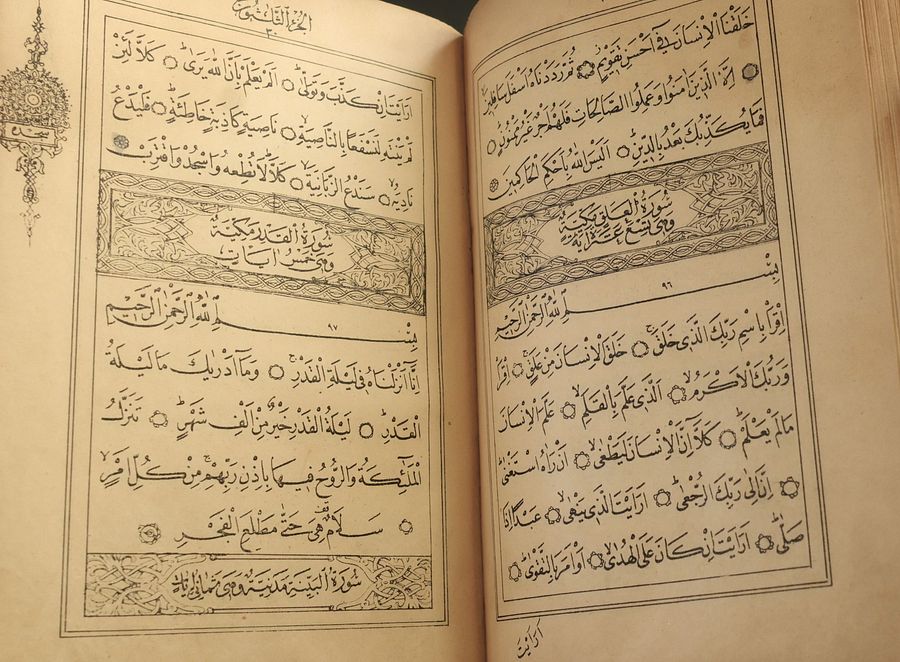 خَلَقْنَا الْاِنْسَانَ فٖٓي اَحْسَنِ تَقْوٖيمٍ ثُمَّ رَدَدْنَاهُ اَسْفَلَ سَافِلٖينَ
اِلَّا الَّذٖينَ اٰمَنُوا وَعَمِلُوا الصَّالِحَاتِ فَلَهُمْ اَجْرٌ غَيْرُ مَمْنُونٍ
فَمَا يُكَذِّبُكَ بَعْدُ بِالدّٖينِ اَلَيْسَ اللّٰهُ بِاَحْكَمِ الْحَاكِمٖينَ
سُورَةُ الْعَلَقِ مَكِّيَّةٌ
وَهِيَ تِسْعَ عَشْرَةَ اٰيَةً
بِسْمِ اللّٰهِ الرَّحْمٰنِ الرَّحٖيمِ ٩٦
اِقْرَاْ بِاسْمِ رَبِّكَ الَّذٖي خَلَقَ خَلَقَ الْاِنْسَانَ مِنْ عَلَقٍ اِقْرَاْ
وَرَبُّكَ الْاَكْرَمُ اَلَّذٖي عَلَّمَ بِالْقَلَمِ عَلَّمَ الْاِنْسَانَ
مَا لَمْ يَعْلَمْ كَلَّٓا اِنَّ الْاِنْسَانَ لَيَطْغٰى اَنْ رَاٰهُ اسْتَغْنٰى
اِنَّ اِلٰى رَبِّكَ الرُّجْعٰى اَرَاَيْتَ الَّذٖي يَنْهٰى عَبْدًا اِذَا
صَلّٰى اَرَاَيْتَ اِنْ كَانَ عَلَى الْهُدٰى اَوْ اَمَرَ بِالتَّقْوٰى
اَرَاَيْتَ
الجزء الثلاثون
٣٠
سجده
اَرَاَيْتَ اِنْ كَذَّبَ وَتَوَلّٰى اَلَمْ يَعْلَمْ بِاَنَّ اللّٰهَ يَرٰى كَلَّا لَئِنْ
لَمْ يَنْتَهِ لَنَسْفَعًا بِالنَّاصِيَةِ نَاصِيَةٍ كَاذِبَةٍ خَاطِئَةٍ فَلْيَدْعُ
نَادِيَهُ سَنَدْعُ الزَّبَانِيَةَ كَلَّا لَا تُطِعْهُ وَاسْجُدْ وَاقْتَرِبْ
سُورَةُ الْقَدْرِ مَكِّيَّةٌ
وَهِيَ خَمْسُ اٰيَاتٍ
بِسْمِ اللّٰهِ الرَّحْمٰنِ الرَّحٖيمِ ٩٧
اِنَّٓا اَنْزَلْنَاهُ فٖي لَيْلَةِ الْقَدْرِ وَمَٓا اَدْرٰيكَ مَا لَيْلَةُ
الْقَدْرِ لَيْلَةُ الْقَدْرِ خَيْرٌ مِنْ اَلْفِ شَهْرٍ تَنَزَّلُ
الْمَلٰٓئِكَةُ وَالرُّوحُ فٖيهَا بِاِذْنِ رَبِّهِمْ مِنْ كُلِّ اَمْرٍ
سَلَامٌ هِيَ حَتّٰى مَطْلَعِ الْفَجْرِ
سُورَةُ الْبَيِّنَةِ مَدَنِيَّةٌ وَهِيَ ثَمَانِي اٰيَاتٍ